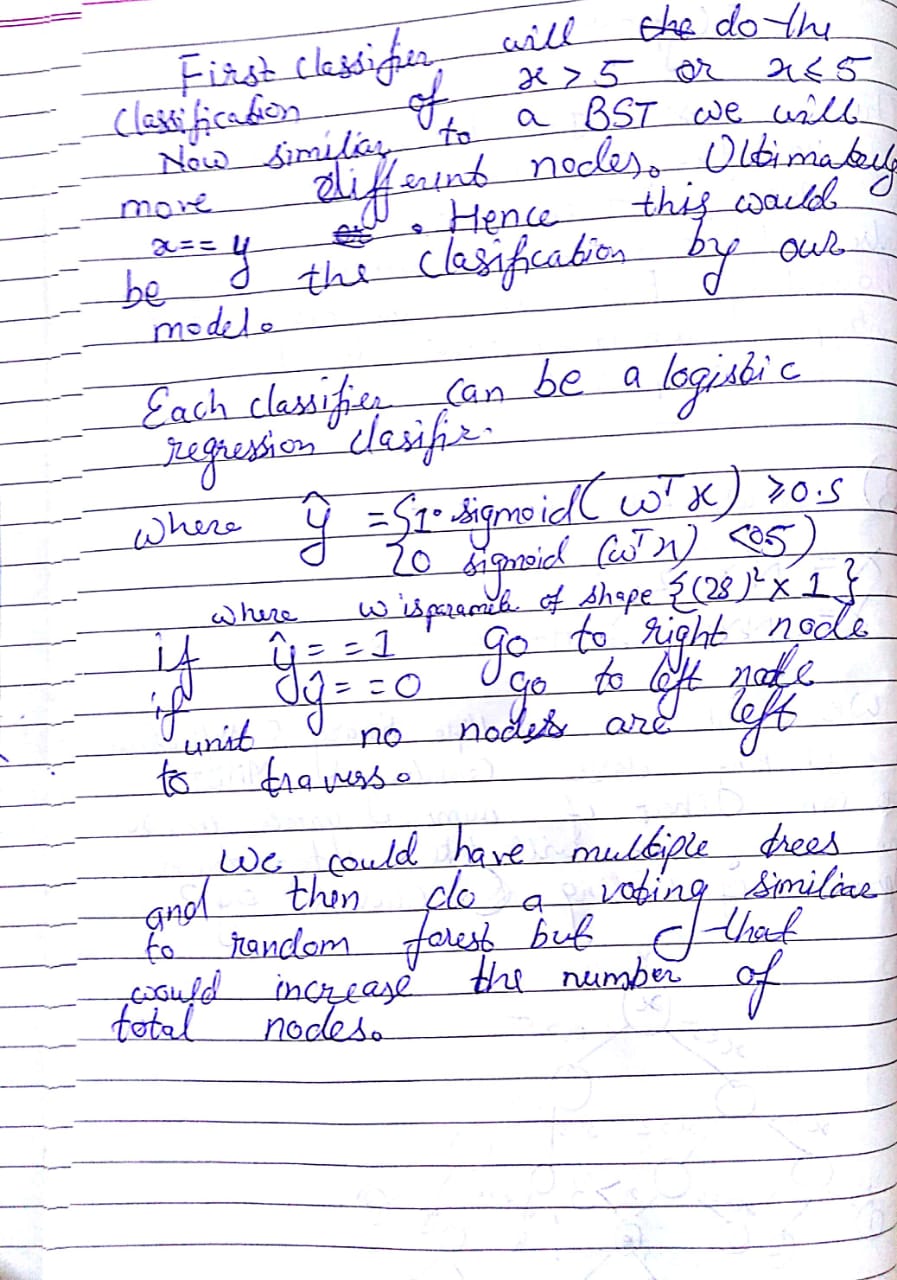 First classifier will the do the
classification of x > 5 or x ≤ 5
Now similiar to a BST we will
move different nodes. Ultimately
x == y . Hence this would
be the clasification by our
model.
Each classifier can be a logistic
regression clasifir.
where ŷ = { 1 sigmoid(wᵀx) ≥ 0.5
{ 0 sigmoid (wᵀx) < 05)
where w is parametr of shape {(28)² x 1}
if ŷ == 1 go to right node
if ŷ == 0 go to left node
unit no nodes are left
to travers.
We could have multiple trees
and then do a voting similiar
to random forest but that
would increase the number of
total nodes.